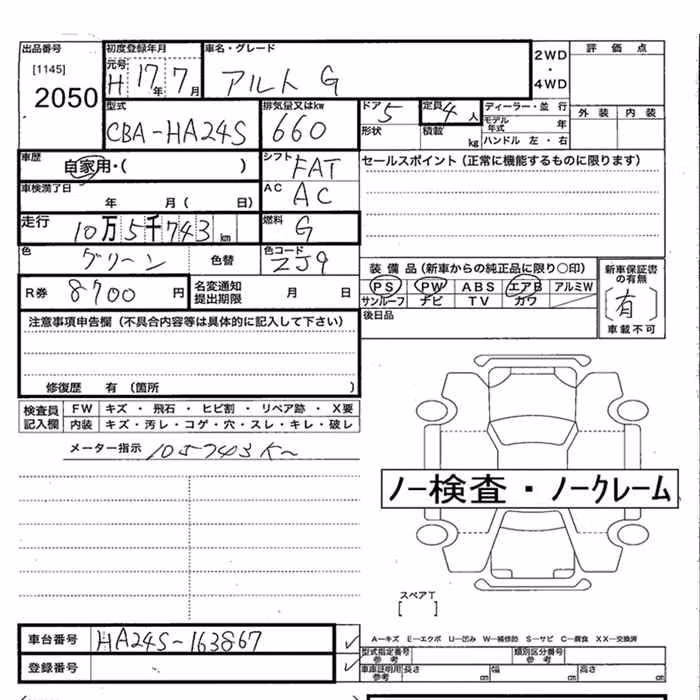 出品番号 初度登録年月 車名・グレード 2WD・4WD 評価点
[1145] 元号 H 17年 7月 アルト G
2050
型式 排気量又はkw ドア 5 定員 4人 ディーラー・並行 外装 内装
CBA-HA24S 660 形状 積載 kg モデル年式 年
ハンドル 左・右
車歴 自家用・( ) シフト FAT セールスポイント(正常に機能するものに限ります)
車検満了日 年 月( 日) AC AC
走行 10万5千743km 燃料 G
色 グリーン 色替 色コード ZJ9 装備品(新車からの純正品に限り○印) 新車保証書の有無
R券 8700円 名変通知提出期限 月 日 PS PW ABS エアB アルミW 〔有〕
サンルーフ ナビ TV カワ
注意事項申告欄(不具合内容等は具体的に記入して下さい) 後日品 車載不可
修復歴 有(箇所 )
検査員記入欄 FW キズ・飛石・ヒビ割・リペア跡・X要
内装 キズ・汚レ・コゲ・穴・スレ・キレ・破レ
メーター指示 105743K
ノー検査・ノークレーム
スペアT
[ ]
車台番号 HA24S-163867 A―キズ E―エクボ U―凹み W―補修跡 S―サビ C―腐食 XX―交換済
登録番号 型式指定番号参考 類別区分番号参考
車庫証明用参考 長さ cm 幅 cm 高さ cm